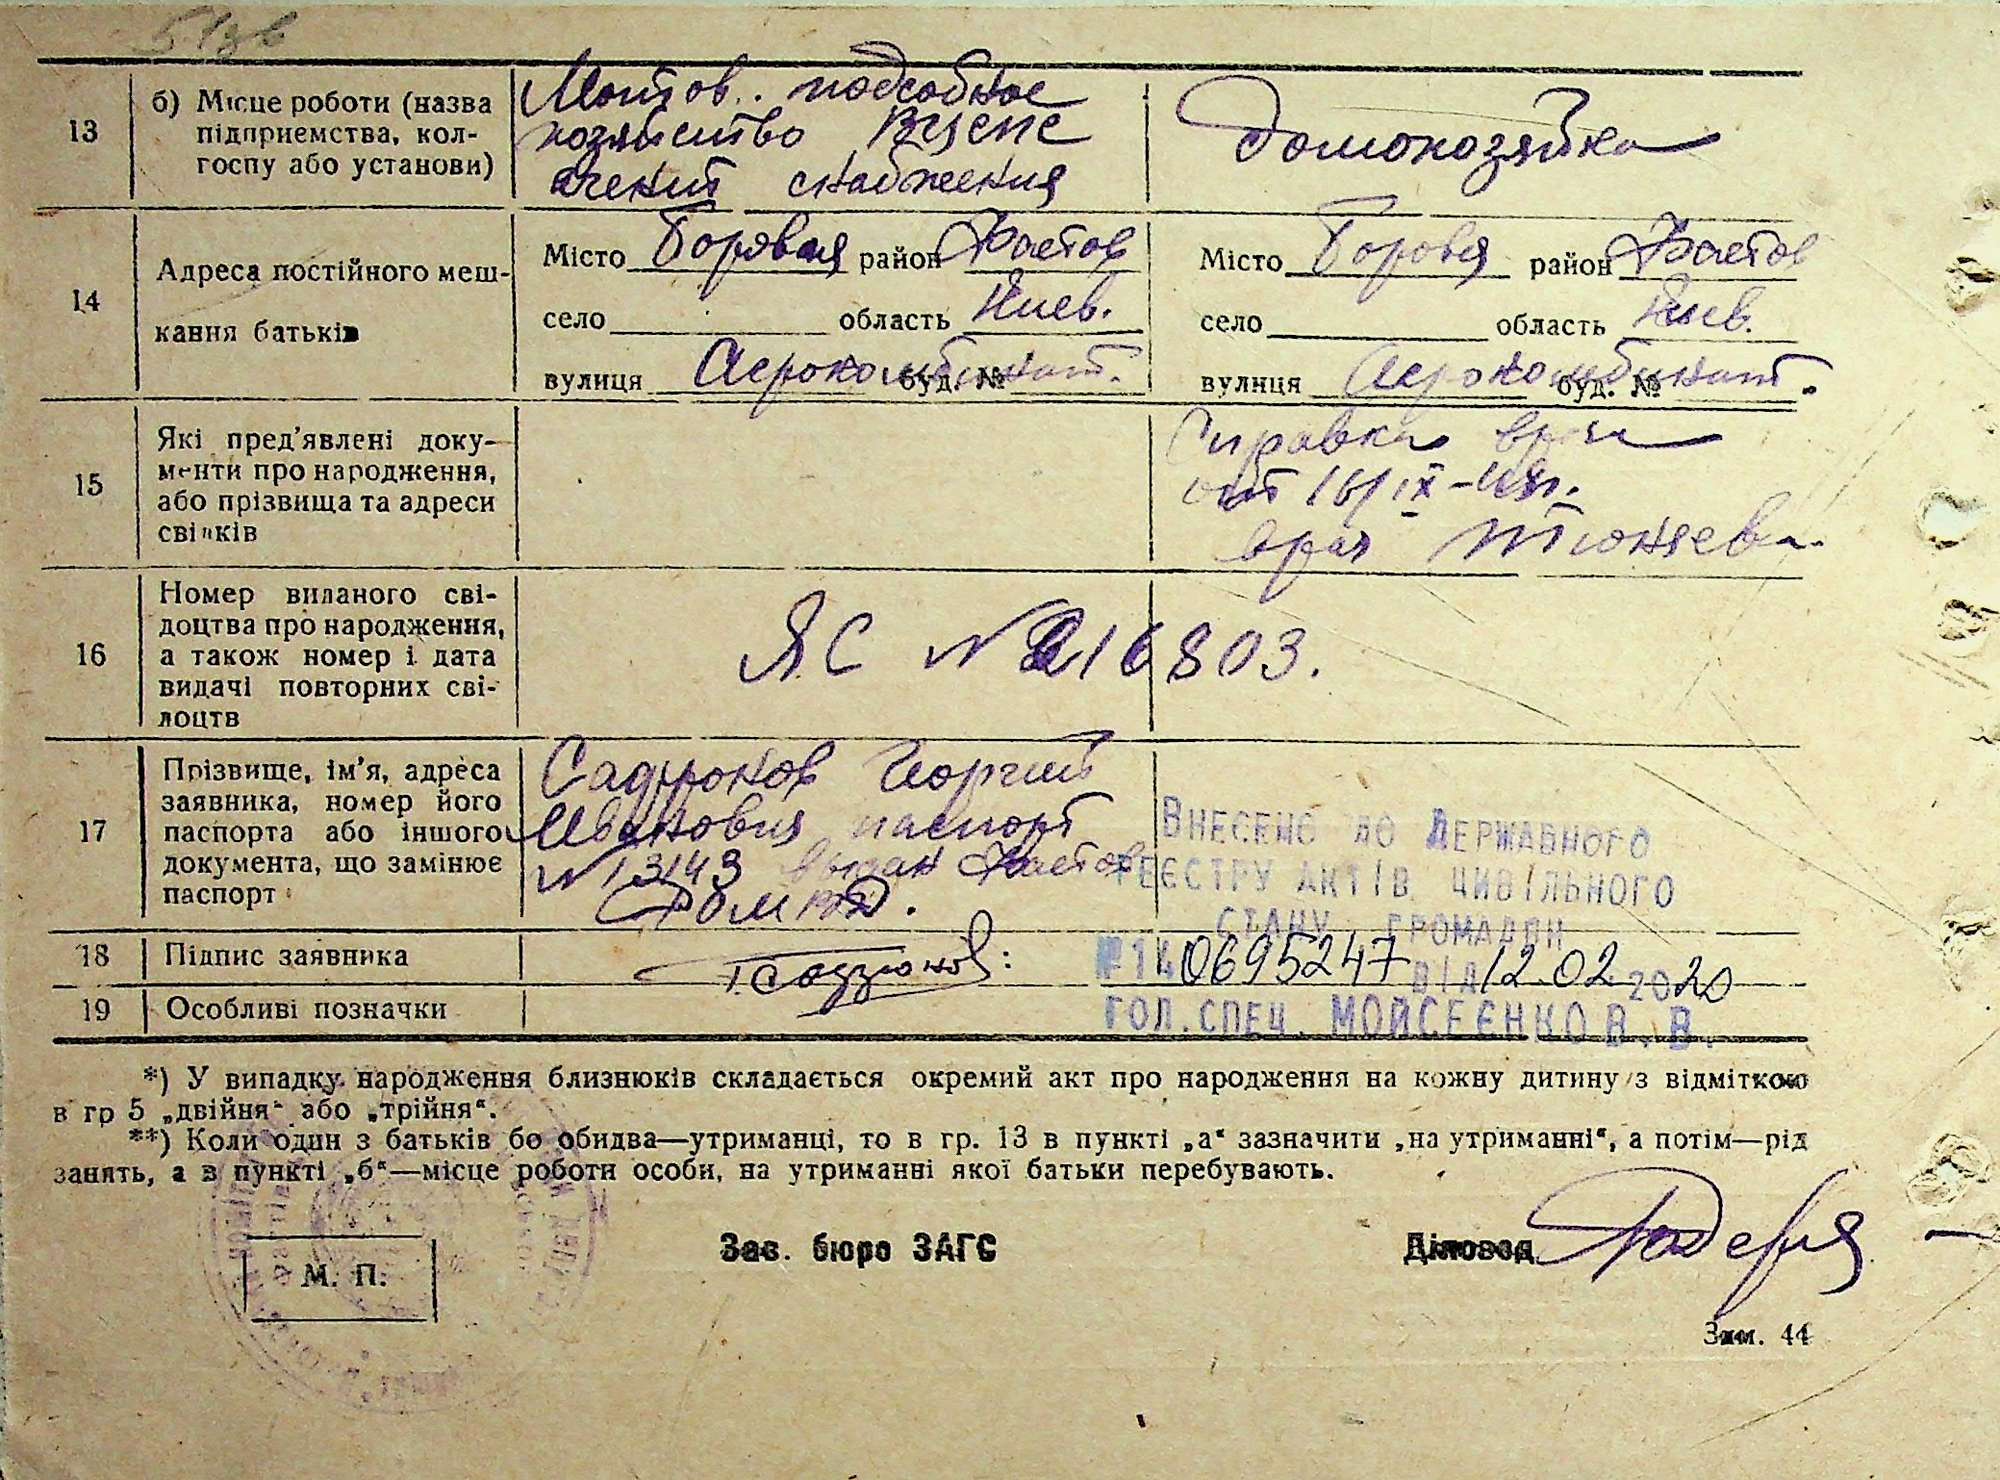 13
б) Місце роботи (назва
підприємства, кол-
госпу або установи)
подсобное
хозяйство
снабжения
Домохозяйка
14
Адреса постійного меш-
кання батьків
Місто Боровая район Фастов
село область Киев.
вулиця Аерокомбинат. буд. №
Місто Боровя район Фастов
село область Киев.
вулиця Аерокомбинат. буд. №
15
Які пред'явлені доку-
менти про народження,
або прізвища та адреси
свідків
Справка врача
от 16/IX-48г.
врач Тюняева.
16
Номер виданого сві-
доцтва про народження,
а також номер і дата
видачі повторних сві-
доцтв
ЯС № 216803.
17
Прізвище, ім'я, адреса
заявника, номер його
паспорта або іншого
документа, що замінює
паспорт
Георгий
Иванович паспорт
№ 13143 выдан Фастов
ВНЕСЕНО ДО ДЕРЖАВНОГО
РЕЄСТРУ АКТІВ ЦИВІЛЬНОГО
СТАНУ ГРОМАДЯН
18
Підпис заявника
№140695247 ВІД 12.02.2020
19
Особливі позначки
ГОЛ. СПЕЦ. МОЙСЕЄНКО В. В.
*) У випадку народження близнюків складається окремий акт про народження на кожну дитину з відміткою
в гр 5 „двійня“ або „трійня“.
**) Коли один з батьків бо обидва—утриманці, то в гр. 13 в пункті „а“ зазначити „на утриманні“, а потім—рід
занять, а в пункті „б“—місце роботи особи, на утриманні якої батьки перебувають.
М. П.
Зав. бюро ЗАГС
Діловод
Зам. 44